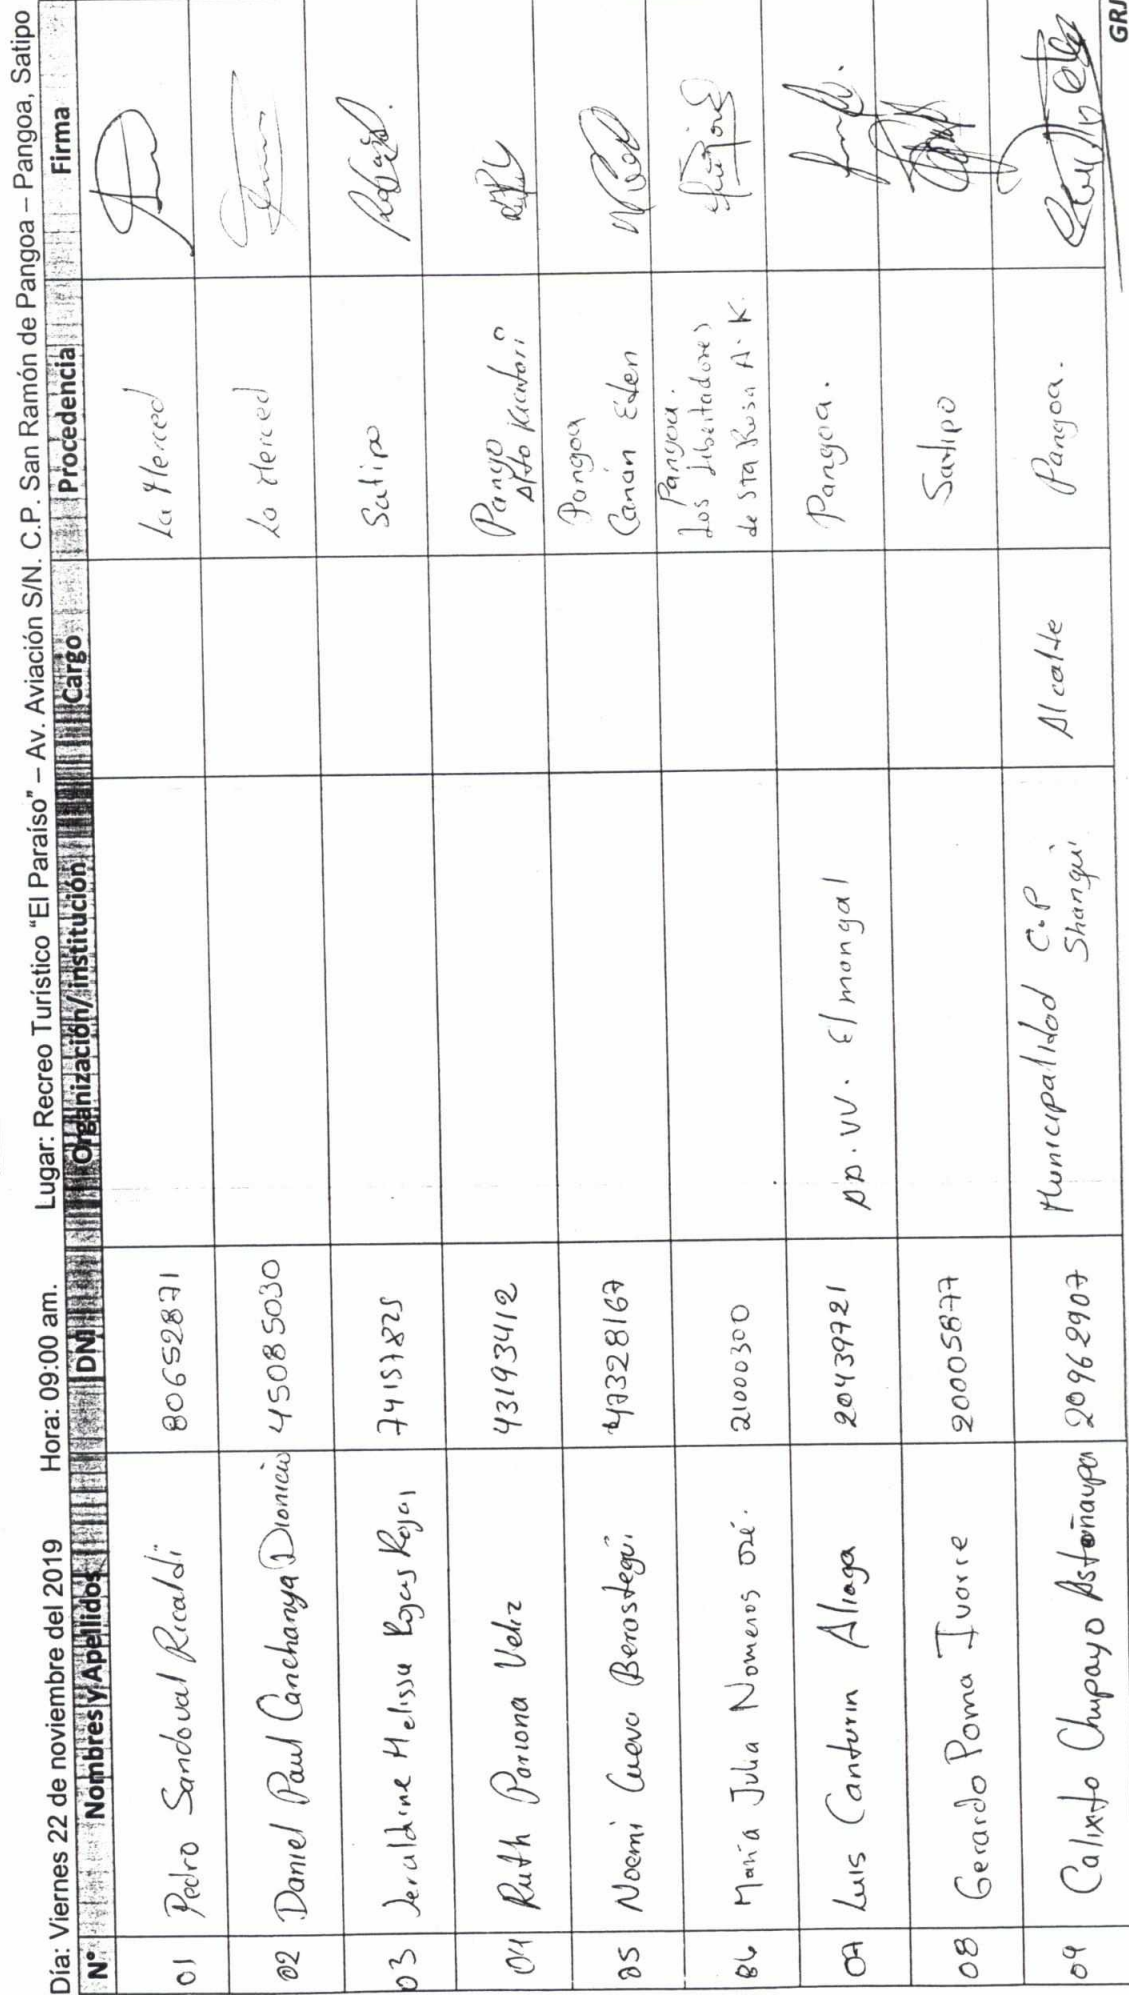 Día: Viernes 22 de noviembre del 2019 Hora: 09:00 am. Lugar: Recreo Turístico "El Paraíso" – Av. Aviación S/N. C.P. San Ramón de Pangoa – Pangoa, Satipo
N° Nombres y Apellidos DNI Organización/institución Cargo Procedencia Firma
01 Pedro Sandoval Ricaldi 80652871 La Merced
02 Daniel Paul Canchanya Dionicio 45085030 La Merced
03 Jeraldine Melissa Rojas Rojas 74157825 Satipo
04 Ruth Pariona Veliz 43193412 Pango
Alto Kiatari
05 Noemi Cueva Berostegui 47328167 Pangoa
Canán Eden
06 María Julia Nomeros 21000300 Pangoa.
Los Libertadores
de Sta Rosa A. K.
07 Luis Canturin Aliaga 20439721 AA. VV. El mongal Pangoa.
08 Gerardo Poma Ivarre 20005877 Satipo
09 Calixto Chupayo Astoñaupa 20962907 Municipalidad C.P Alcalde Pangoa.
Shanqui
GRJ